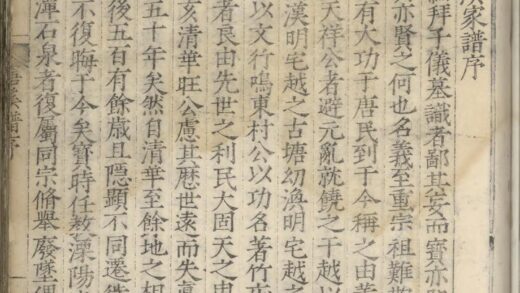 家譜序
拜子儀墓識者鄙其妄而寶亦
亦賢之何也名義至重宗祖難
有大功于唐民到于今稱之由
天祥公者避元亂就饒之干越以
漢明宅越之古塘幼漁明宅越之
以文行鳴東村公以功名著竹
者良由先世之利民大固天之
亥清華旺公慮其歷世遠而失
五十年矣然自清華至餘地之相
後五百有餘歲且隱顯不同遷
不復晦于今矣寶時任教溧陽
渾石泉者復屬同宗脩舉廢墜
譜序